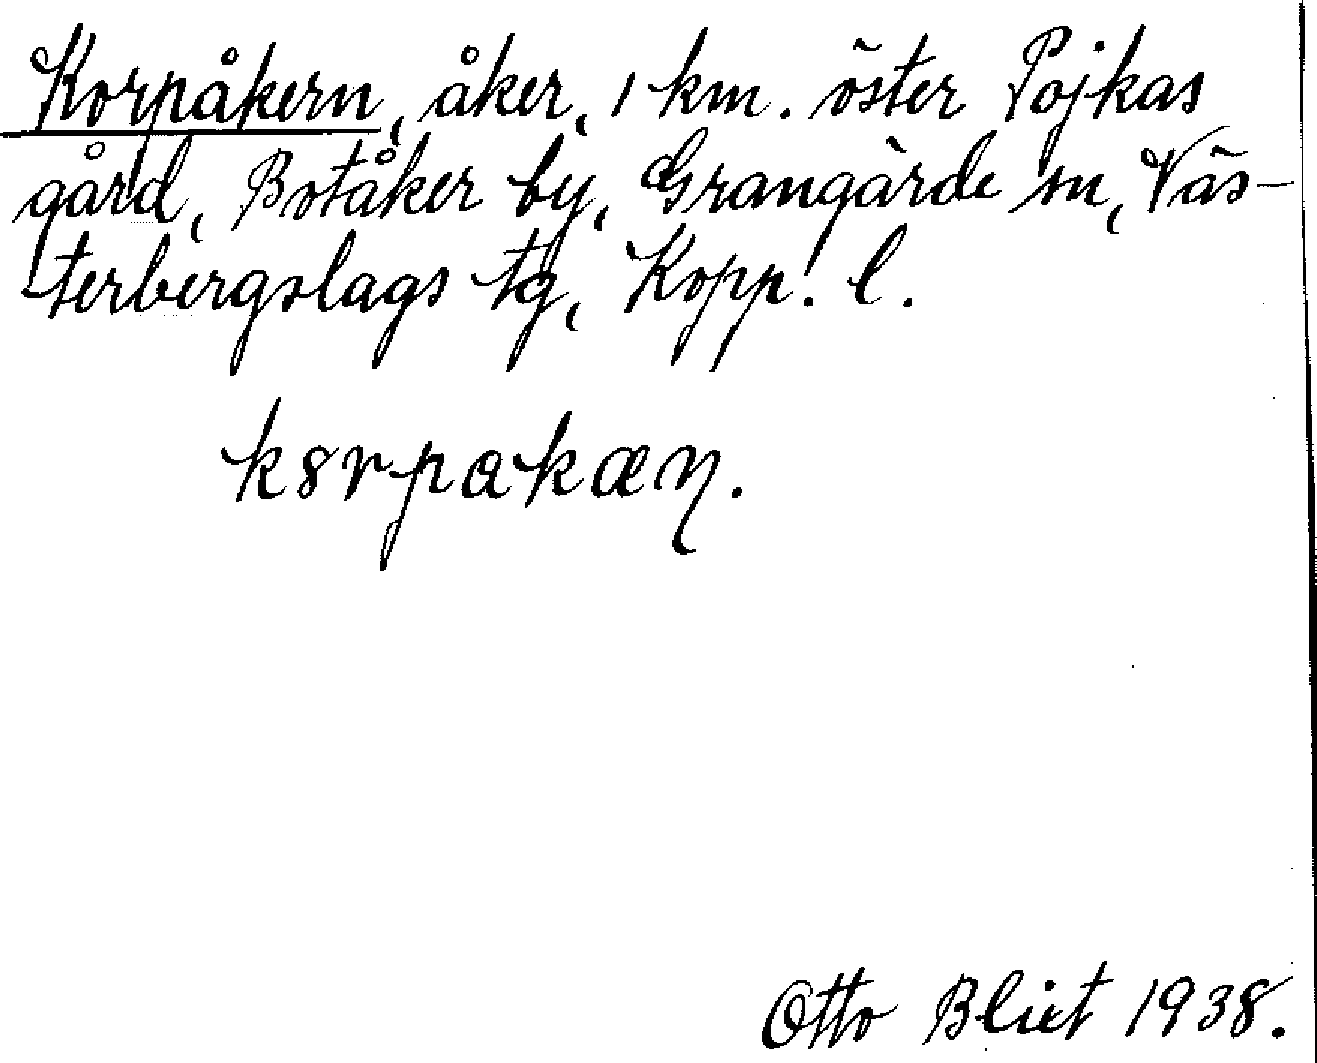 Korpåkern, åker, 1 km. öster Pojkas
gård, Botåker by, Grangärde sn, Väs-
terbergslags tg, Kopp. l.
k8rpakæn.
Otto Blixt 1938.